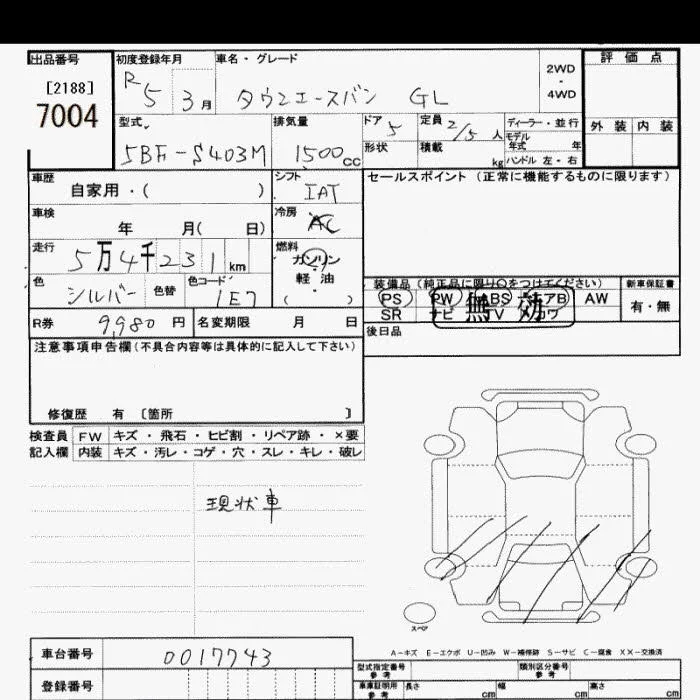 出品番号
[2188]
7004
初度登録年月
R 5 3月
車名・グレード
タウンエースバン GL
2WD
・
4WD
評価点
外装 内装
型式
5BF-S403M
排気量
1500cc
ドア 5
形状
定員 2/5 人
積載 kg
ディーラー・並行
モデル
年式 年
ハンドル 左・右
車歴
自家用・( )
シフト
IAT
セールスポイント (正常に機能するものに限ります)
車検
年 月( 日)
冷房
AC
走行
5万4千231km
燃料
ガソリン
・
軽油
( )
色
シルバー
色替
色コード
1E7
装備品(純正品に限り○をつけてください)
PS PW ABS エアB AW
SR ナビ TV カワ
無効
新車保証書
有・無
R券 9980円
名変期限 月 日
後日品
注意事項申告欄(不具合内容等は具体的に記入して下さい)
修復歴 有 〔箇所 〕
検査員 FW キズ・飛石・ヒビ割・リペア跡・×要
記入欄 内装 キズ・汚レ・コゲ・穴・スレ・キレ・破レ
現状車
スペア
A-キズ E-エクボ U-凹み W-補修跡 S-サビ C-腐食 XX-交換済
車台番号 0017743
登録番号
型式指定番号
参考
類別区分番号
参考
車庫証明用
参考
長さ cm
幅 cm
高さ cm